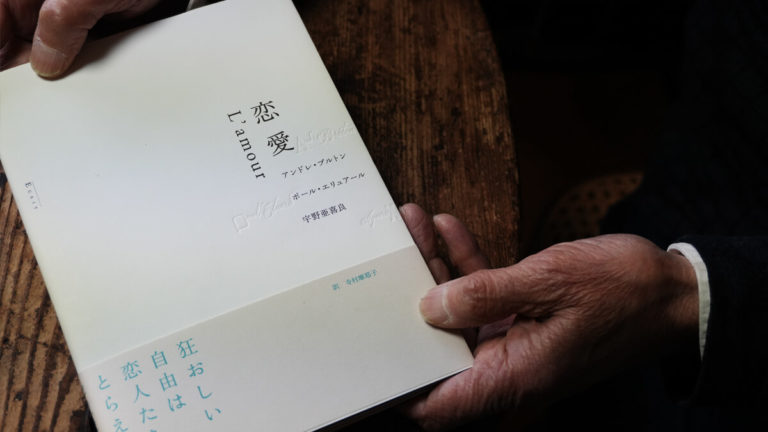 恋愛
L'amour
アンドレ・ブルトン
ポール・エリュアール
宇野亜喜良
狂おしい
自由は
恋人た
とらえ